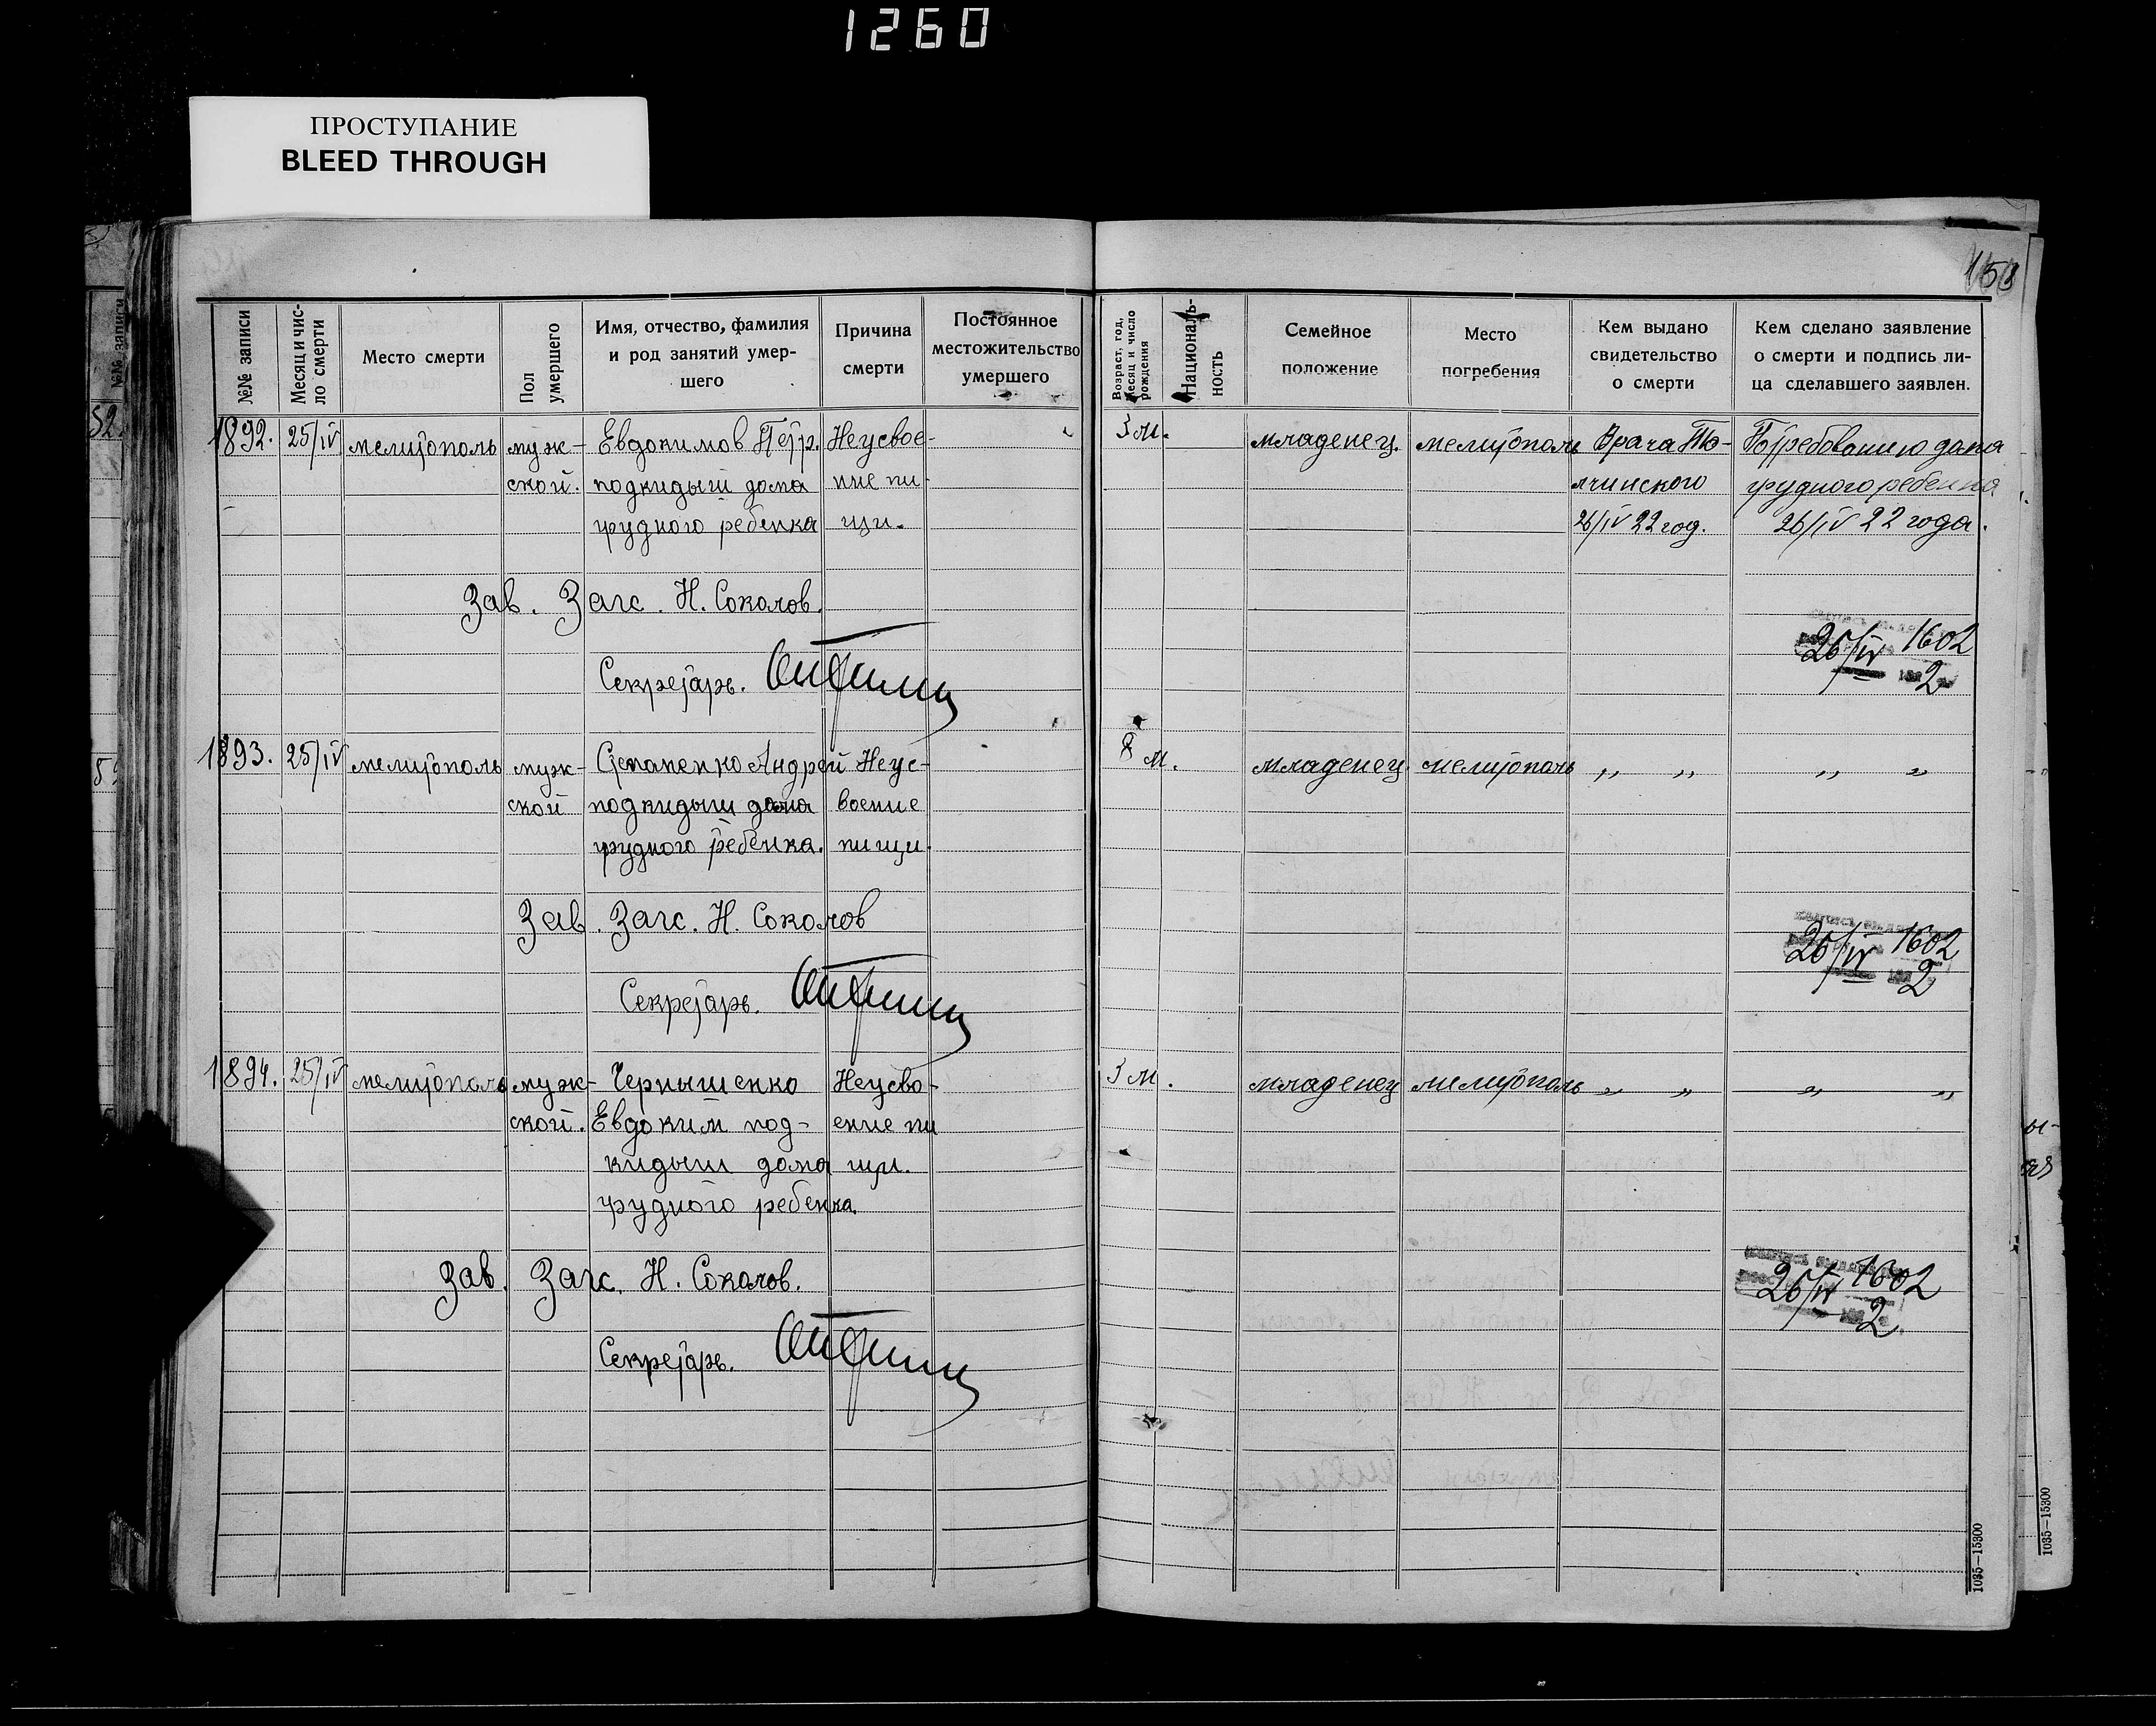 1260
ПРОСТУПАНИЕ
BLEED THROUGH
153
№№ записи
Месяц и чис-
ло смерти
Место смерти
Пол
умершего
Имя, отчество, фамилия
и род занятий умер-
шего
Причина
смерти
Постоянное
местожительство
умершего
Возраст, год,
месяц и число
рождения
Националь-
ность
Семейное
положение
Место
погребения
Кем выдано
свидетельство
о смерти
Кем сделано заявление
о смерти и подпись ли-
ца сделавшего заявлен.
1892. 25/IV мелитополь муж- Евдокимов Петр. Неусвое- 3 м. младенец. мелитополь Врача По требованию дома
ской. подкидыш дома ние пи- грудного ребенка
грудного ребенка щи. 26/IV 22 год. 26/IV 22 года.
Зав. Загс. Н. Соколов.
26/IV 1602
2
Секретарь.
1893. 25/IV мелитополь муж- Степаненко Андрей Неус- 8 м. младенец. мелитополь „ „ „ „
ской подкидыш дома воение
грудного ребенка. пищи.
Зав. Загс. Н. Соколов
26/IV 1602
2
Секретарь.
1894. 25/IV мелитополь муж- Чернышенко Неусво- 3 м. младенец мелитополь „ „ „ „
ской. Евдоким под- ение пи
кидыш дома щи.
грудного ребенка.
Зав. Загс. Н. Соколов.
26/IV 1602
2
Секретарь.
1035—15300
1035—15300